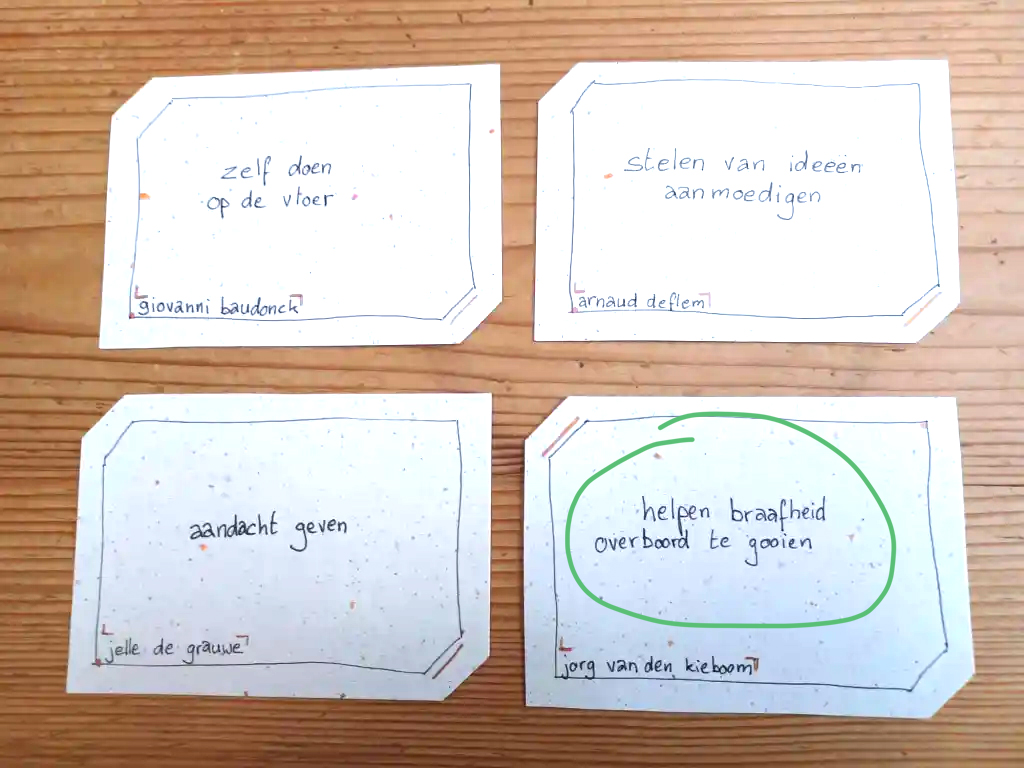 zelf doen
op de vloer
giovanni baudonck
stelen van ideeën
aanmoedigen
arnaud deflem
aandacht geven
jelle de grauwe
helpen braafheid
overboord te gooien
jorg van den kieboom